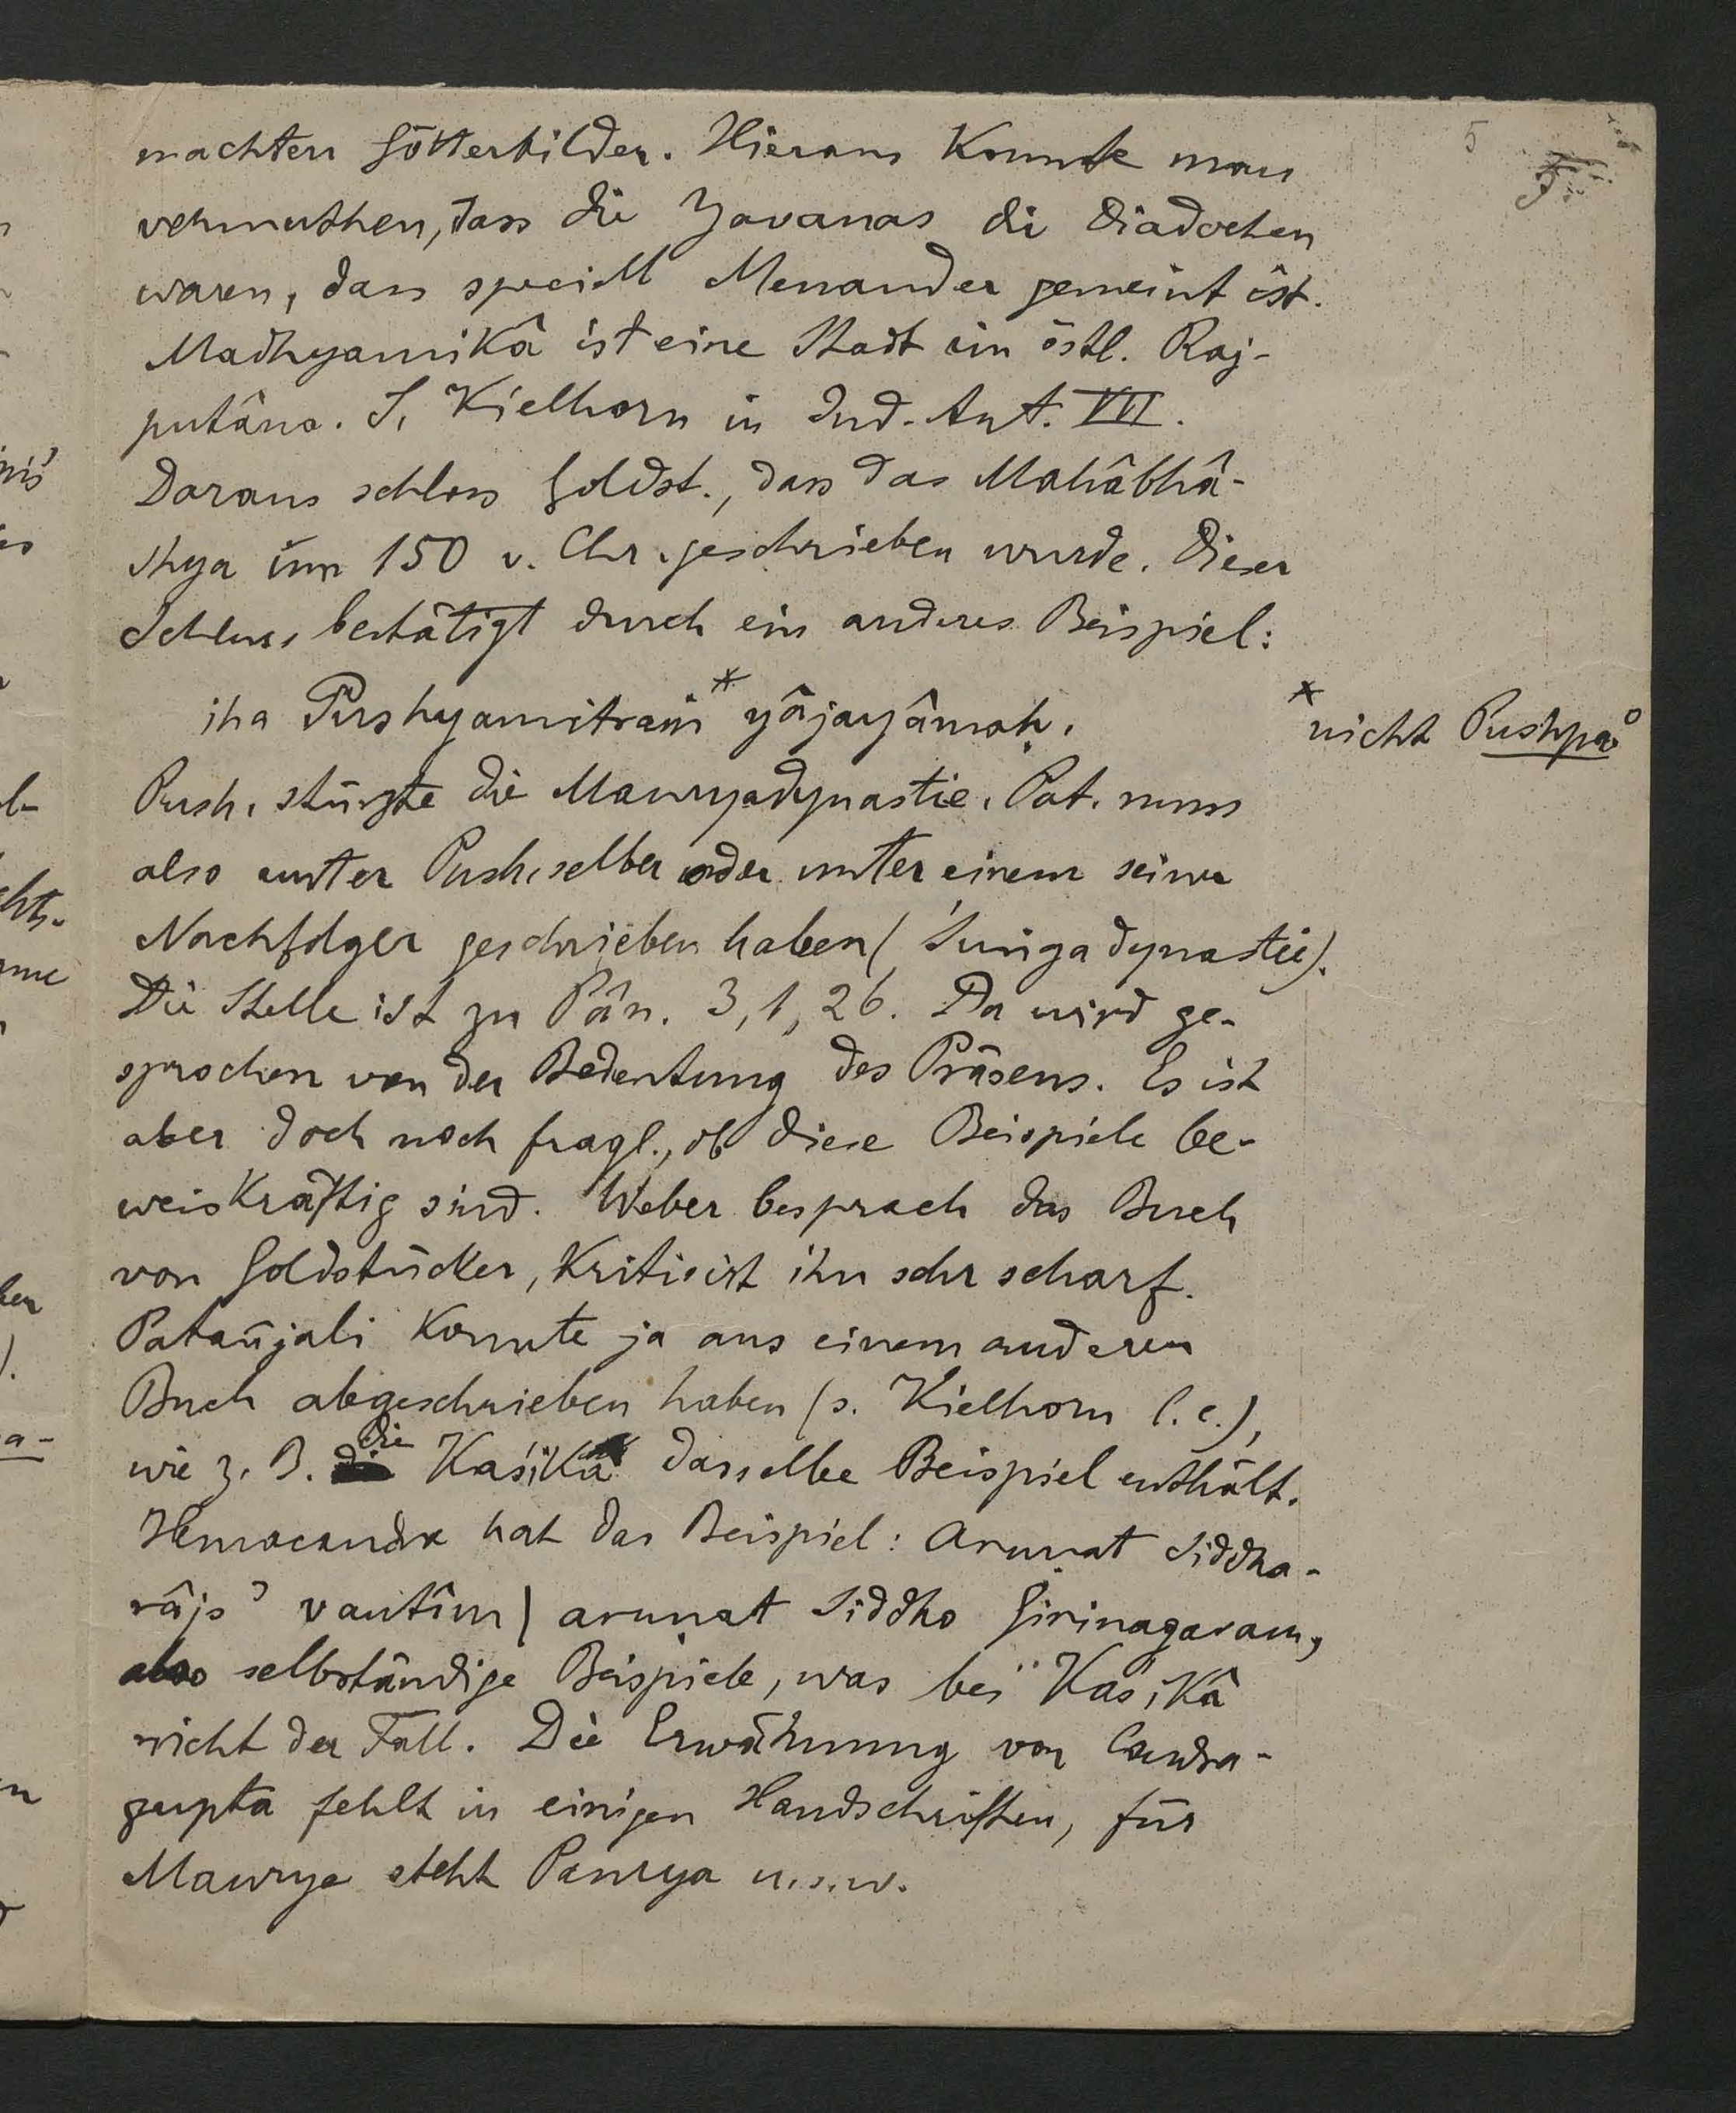 5
machten Götterbilder. Hieraus konnte man
vermuthen, dass die Yavanas die Diadochen
waren, dass speciell Menander gemeint ist.
Madhyamikâ ist eine Stadt im östl. Raj-
putâna. S. Kielhorn in Ind. Ant. VII.
Daraus schloss Goldst., dass das Mahâbhâ-
shya um 150 v. Chr. geschrieben wurde. Dieser
Schluss bestätigt durch ein anderes Beispiel:
iha Pushyamitraṁ* yâjayâmaḥ.
* nicht Pushpa°
Push. stürzte die Mauryadynastie. Pat. muss
also unter Push. selber oder unter einem seiner
Nachfolger geschrieben haben (Śuṅgadynastie).
Die Stelle ist zu Pâṇ. 3, 1, 26. Da wird ge-
sprochen von der Bedeutung des Präsens. Es ist
aber doch noch fragl., ob diese Beispiele be-
weiskräftig sind. Weber besprach das Buch
von Goldstücker, kritisirt ihn sehr scharf.
Patañjali konnte ja aus einem anderen
Buch abgeschrieben haben (s. Kielhorn l. c.),
wie z. B. die Kaśikâ dasselbe Beispiel enthält.
Hemacandra hat das Beispiel: aruṇat Siddha-
râjo ’vantîm | aruṇat Siddho Girinagaram,
also selbständige Beispiele, was bei Kâśikâ
nicht der Fall. Die Erwähnung von Candra-
gupta fehlt in einigen Handschriften, für
Maurya steht Paurya u.s.w.